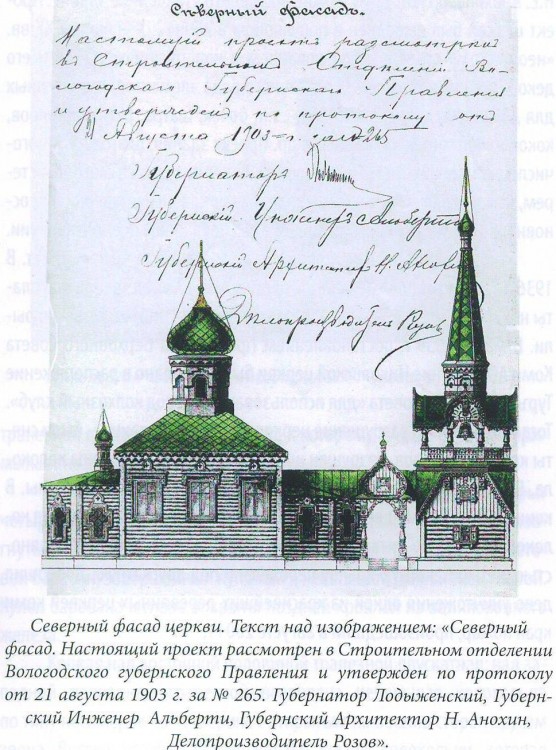 Сѣверный Фасадъ.
Настоящій проектъ разсмотрѣнъ
въ Строительномъ Отдѣленіи Во-
логодскаго Губернскаго Правленія
и утвержденъ по протоколу отъ
21 Августа 1903 г. за № 265
Губернаторъ
Губернскій Инженеръ Альберти
Губернскій Архитекторъ Н. Анохинъ
Дѣлопроизводитель Розовъ
Северный фасад церкви. Текст над изображением: «Северный
фасад. Настоящий проект рассмотрен в Строительном отделении
Вологодского губернского Правления и утвержден по протоколу
от 21 августа 1903 г. за № 265. Губернатор Лодыженский, Губерн-
ский Инженер Альберти, Губернский Архитектор Н. Анохин,
Делопроизводитель Розов».